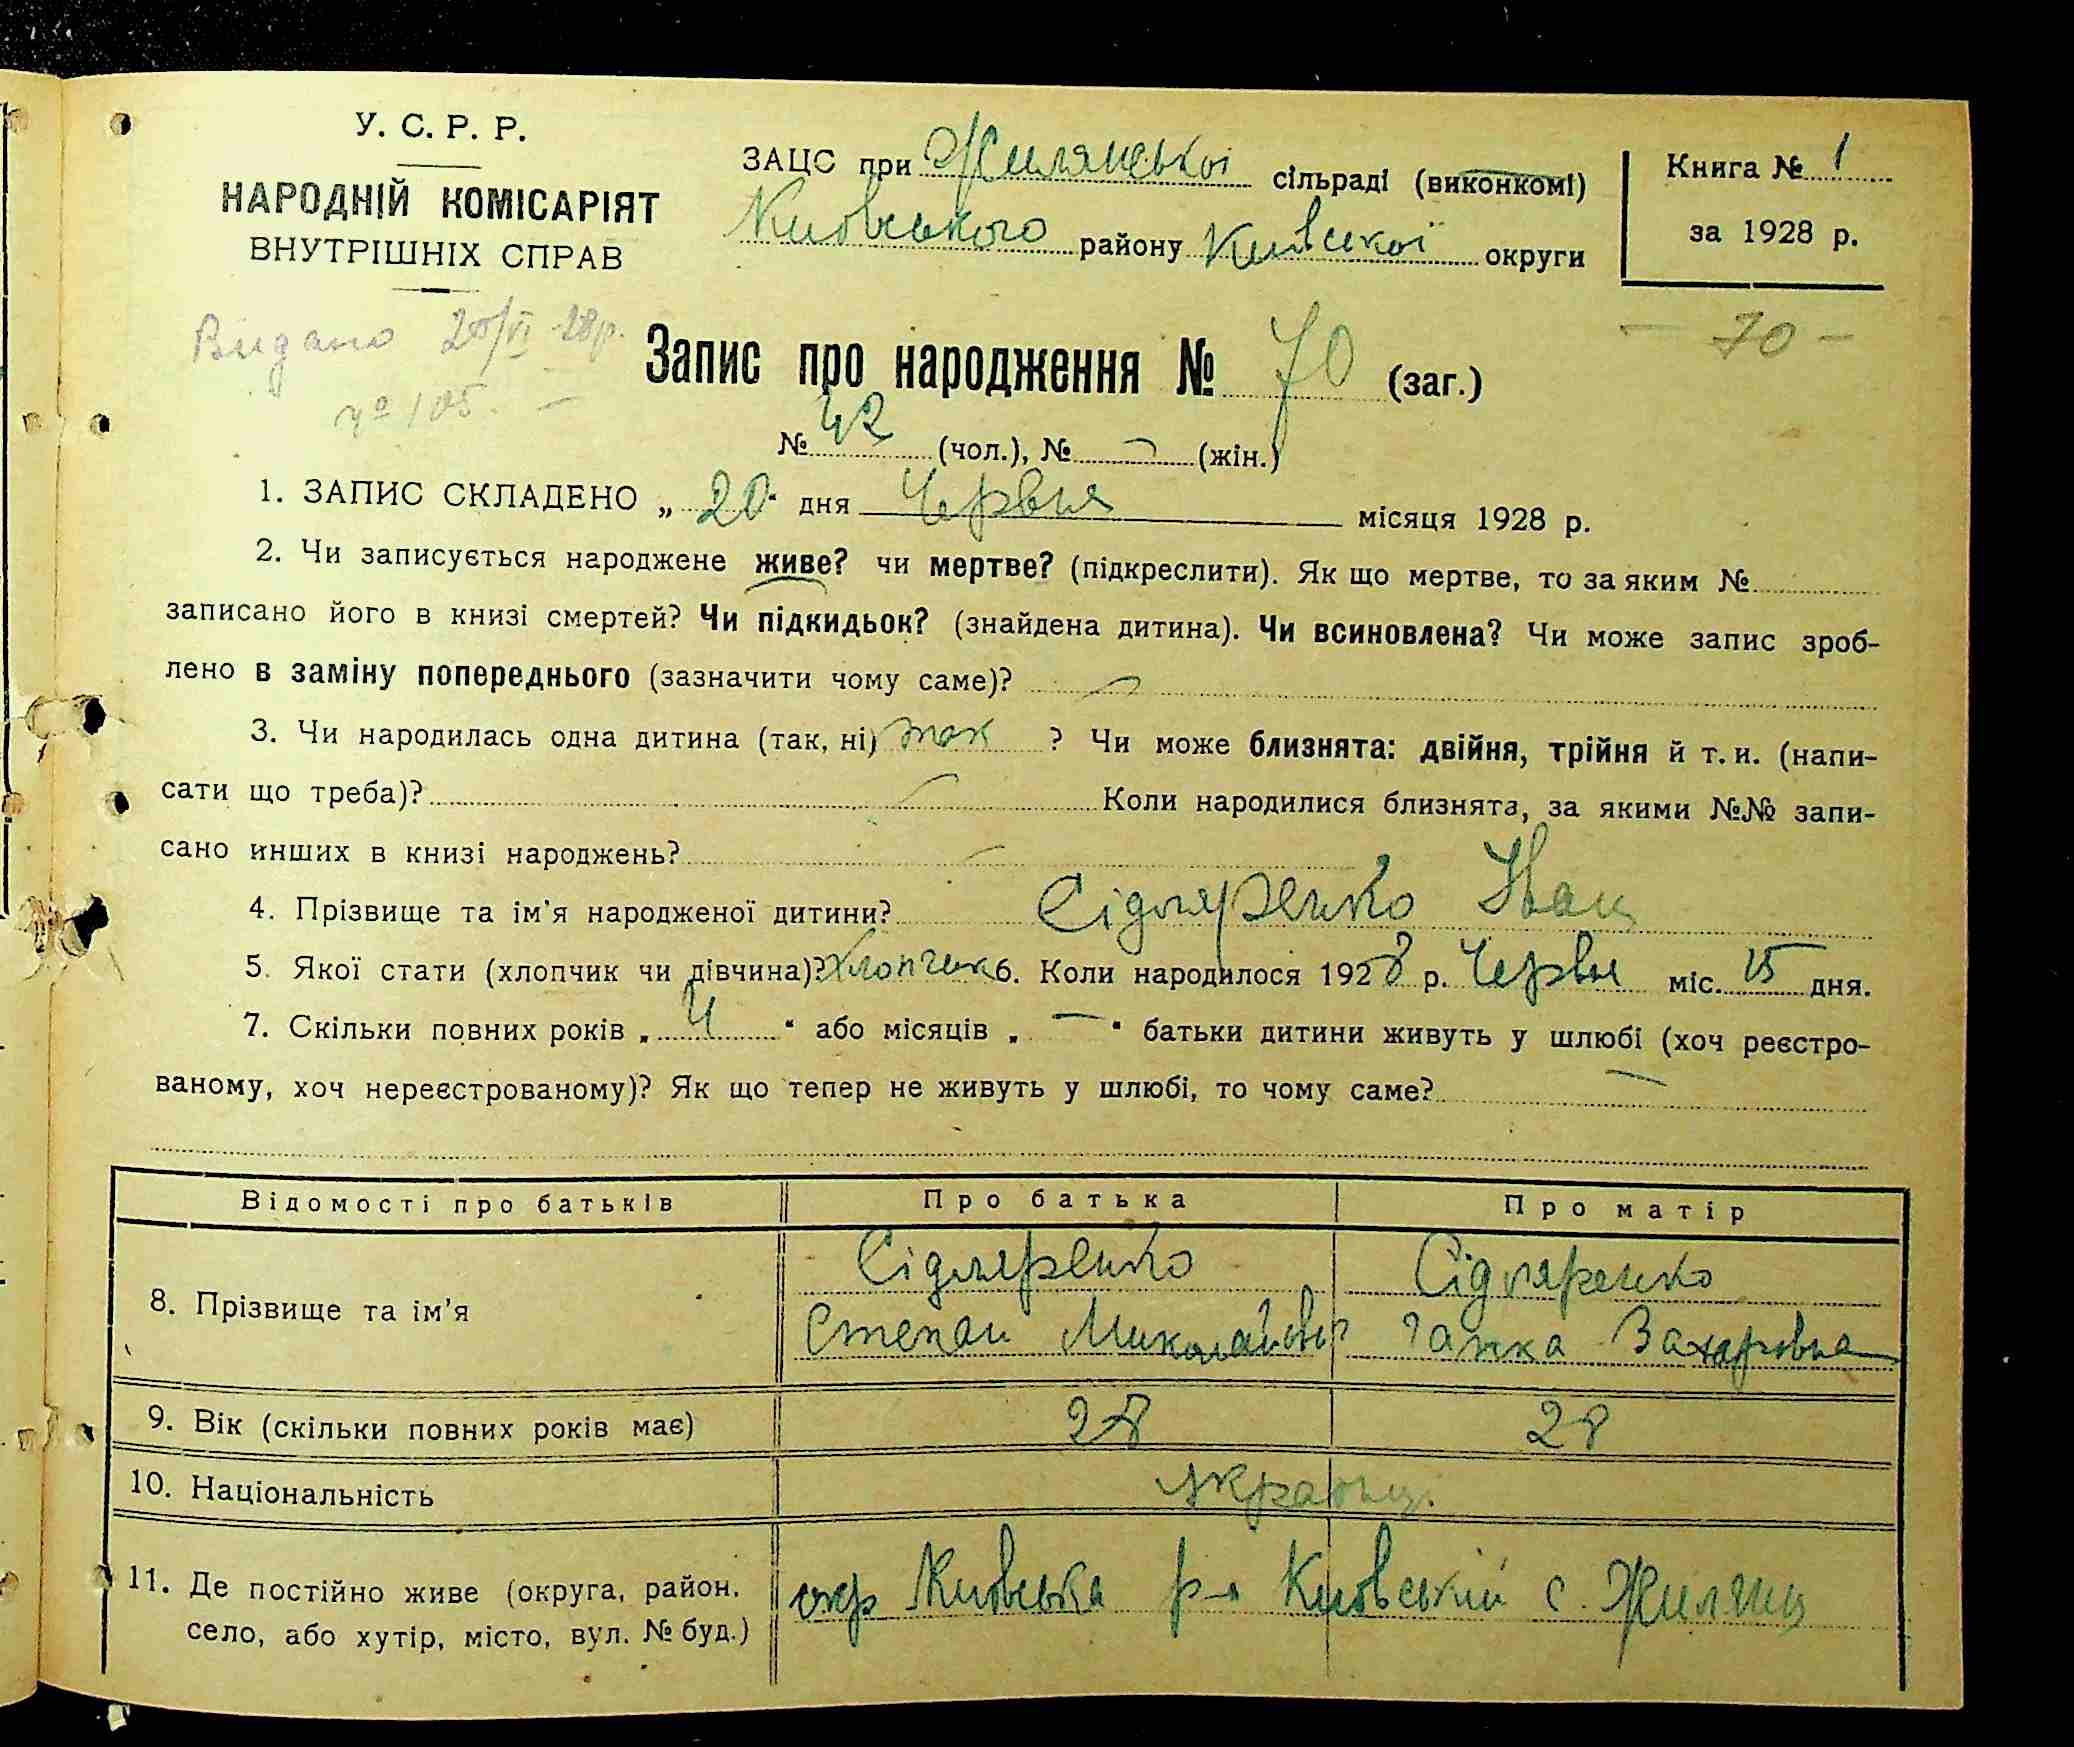 У. С. Р. Р.
НАРОДНІЙ КОМІСАРІЯТ
ВНУТРІШНІХ СПРАВ
ЗАЦС при Жилянської сільраді (виконкомі)
Київського району Київської округи
Книга № 1
за 1928 р.
Видано 20/VI 28р.
№ 105. –
– 70 –
Запис про народження № 70 (заг.)
№ 42 (чол.), № – (жін.)
1. ЗАПИС СКЛАДЕНО „ 20 “ дня Червня місяця 1928 р.
2. Чи записується народжене живе? чи мертве? (підкреслити). Як що мертве, то за яким №
записано його в книзі смертей? Чи підкидьок? (знайдена дитина). Чи всиновлена? Чи може запис зроб-
лено в заміну попереднього (зазначити чому саме)? –
3. Чи народилась одна дитина (так, ні) так ? Чи може близнята: двійня, трійня й т. и. (напи-
сати що треба)? – Коли народилися близнята, за якими №№ запи-
сано инших в книзі народжень? –
4. Прізвище та ім'я народженої дитини? Сідляренко Іван
5. Якої стати (хлопчик чи дівчина)? хлопчик 6. Коли народилося 1928 р. Червня міс. 15 дня.
7. Скільки повних років „ 4 “ або місяців „ – “ батьки дитини живуть у шлюбі (хоч реєстро-
ваному, хоч нереєстрованому)? Як що тепер не живуть у шлюбі, то чому саме? –
Відомості про батьків Про батька Про матір
8. Прізвище та ім'я
Сідляренко Сідляренко
Степан Миколайов Ганка Захаровна
9. Вік (скільки повних років має) 28 28
10. Національність україн.
11. Де постійно живе (округа, район,
село, або хутір, місто, вул. № буд.)
окр Київська р-н Київський с. Жиляни